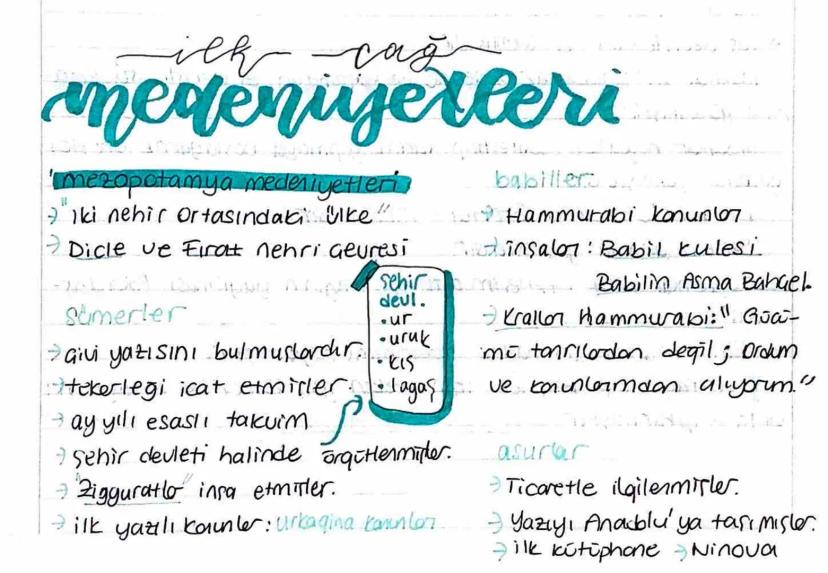 ilk çağ
medeniyetleri
mezopotamya medeniyetleri
→ "iki nehir ortasındaki ülke"
→ Dicle ve Fırat nehri çevresi
sümerler
→ çivi yazısını bulmuşlardır.
→ tekerleği icat etmişler.
→ ay yılı esaslı takvim
→ şehir devleti halinde örgütlenmişler.
→ "zigguratla" inşa etmişler.
→ ilk yazılı kanunlar: urkagina kanunları
şehir
devl.
• ur
• uruk
• kiş
• lagaş
babiller
→ Hammurabi kanunları
→ inşalar: Babil kulesi
Babilin Asma Bahçel.
→ Krallar Hammurabi: "Gücü-
mü tanrılardan değil; Ordum
ve kanunlarımdan alıyorum."
asurlar
→ Ticaretle ilgilenmişler.
→ Yazıyı Anadolu'ya taşımışlar.
→ ilk kütüphane → Ninova